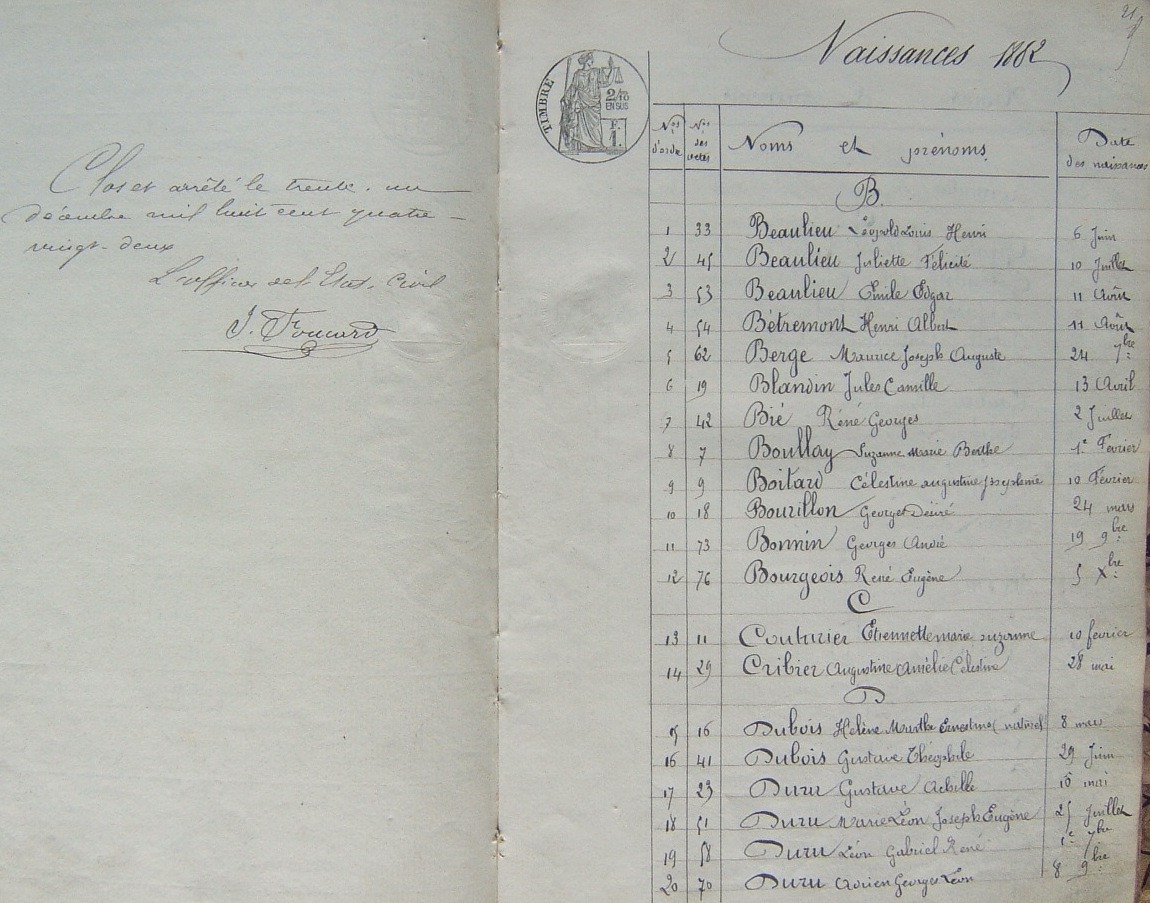 Clos et arrêté le trente-un
décembre mil huit cent quatre-
vingt-deux
L'officier de l'Etat-Civil
J. Foucard
Naissances 1882
TIMBRE
2/10
EN SUS
F.
1.
Nos d'ordre Nos des actes Noms et prénoms. Date des naissances
B.
1 33 Beaulieu Léopold Louis Henri 6 Juin
2 45 Beaulieu Juliette Félicité 10 Juillet
3 53 Beaulieu Emile Edgar 11 Août
4 54 Bétremont Henri Albert 11 Août
5 62 Berge Maurice Joseph Auguste 24 7bre
6 19 Blandin Jules Camille 13 Avril
7 42 Bié Réné Georges 2 Juillet
8 7 Boullay Suzanne Marie Berthe 1e Février
9 9 Boitard Célestine augustine Joséphine 10 Février
10 18 Bourillon Georges Désiré 24 mars
11 73 Bonnin Georges André 19 9bre
12 76 Bourgeois René Eugène 5 Xbre
C
13 11 Couturier Etiennette marie suzanne 10 fevrier
14 29 Cribier Augustine Amélie Célestine 28 mai
D
15 16 Dubois Hélène Marthe Ernestine (naturel) 8 mars
16 41 Dubois Gustave Théophile 29 Juin
17 23 Duru Gustave Achille 16 mai
18 51 Duru Marie Léon Joseph Eugène 25 Juillet
19 58 Duru Léon Gabriel René 1e 7bre
20 70 Duru Adrien Georges Léon 8 9bre